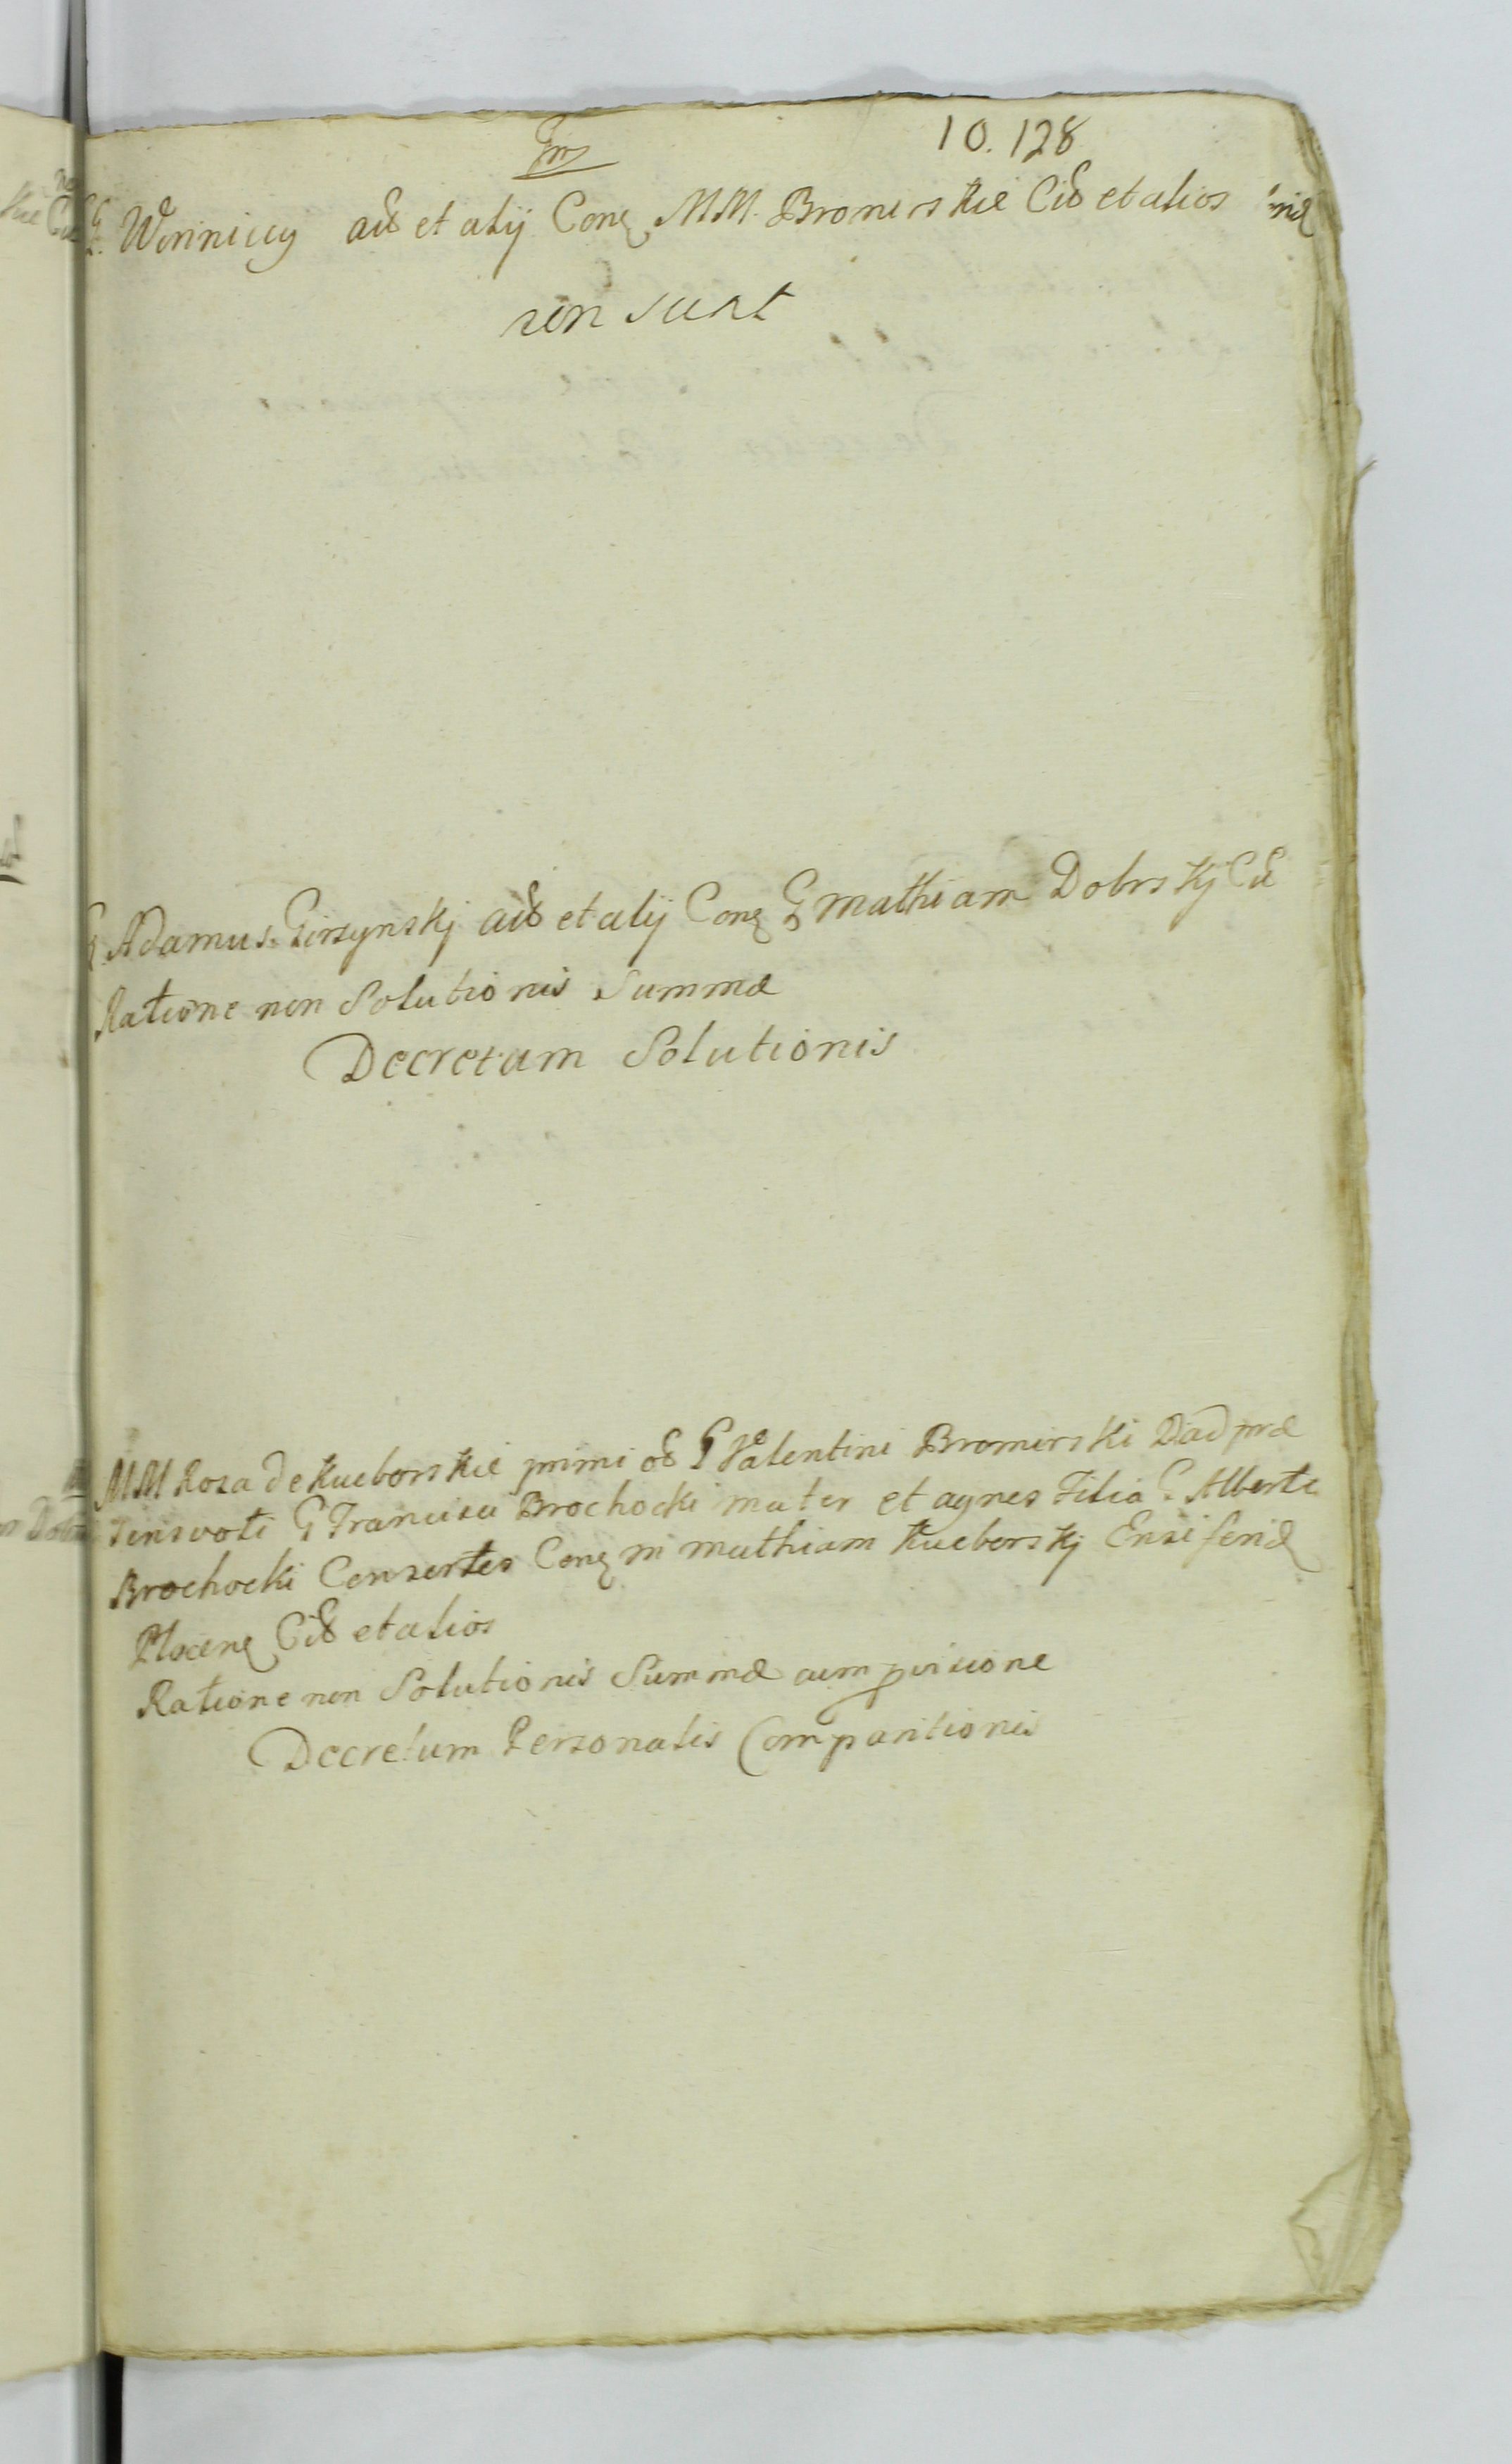 10. 128
G. Winniccy aũ et alij Conq MM. Bromirskie Cũ et alios
non sunt
G Adamus Girzynskj aũ et alij Conq G Mathiam Dobrskj Cũ
Ratione non Solutionis Summæ
Decretum Solutionis
MM Rosa de Kucborskie primi oũ G Valentini Bromirski
voti G Francisci Brochocki mater et agnes Filia G. Alberti
Brochocki Consortes Conq M Mathiam Kucborskj Ensiferũ
Plocenq Cũ et alios
Ratione non Solutionis Summæ cum provisione
Decretum Personalis Comparitionis